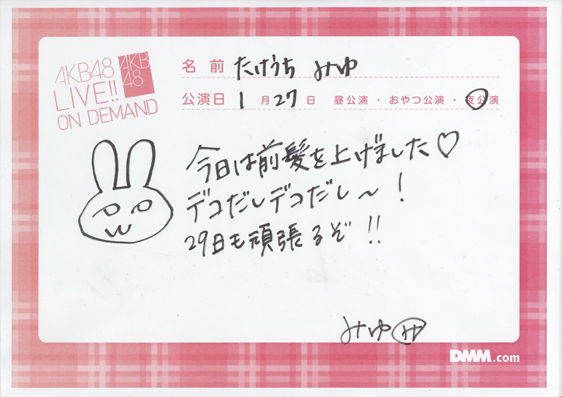 AKB48
LIVE!!
ON DEMAND
AKB
48
名前 たけうち みゆ
公演日 1月27日 昼公演・おやつ公演・夜公演
今日は前髪を上げました♡
デコだしデコだし〜!
29日も頑張るぞ!!
みゆ
DMM.com